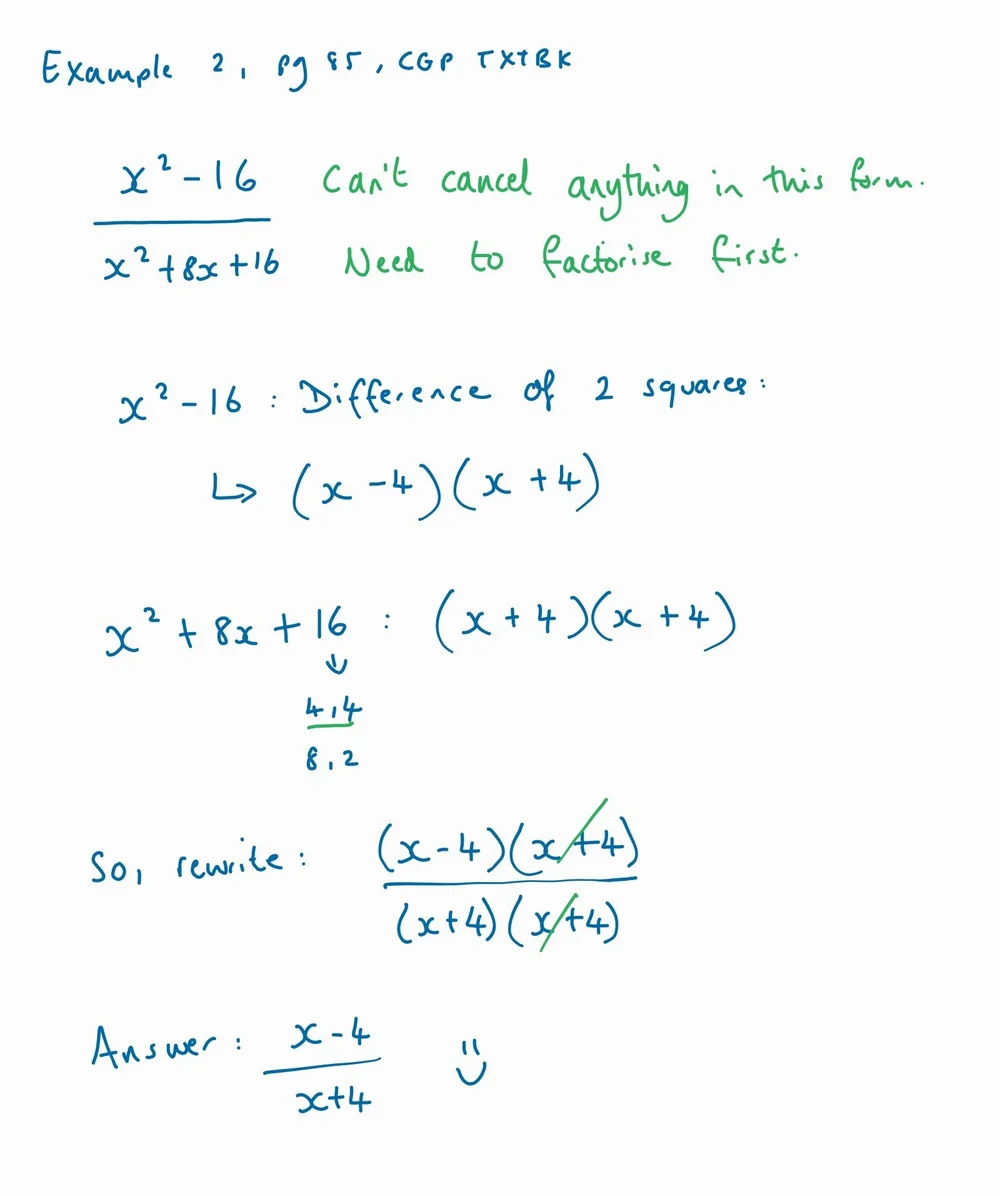 Example 2, pg 85, CGP TXTBK
x² - 16 Can't cancel anything in this form.
x² + 8x + 16 Need to factorise first.
x² - 16 : Difference of 2 squares :
↳ (x - 4)(x + 4)
x² + 8x + 16 : (x + 4)(x + 4)
↓
4, 4
8, 2
So, rewrite : (x - 4)(x + 4)
(x + 4)(x + 4)
Answer : x - 4
x + 4